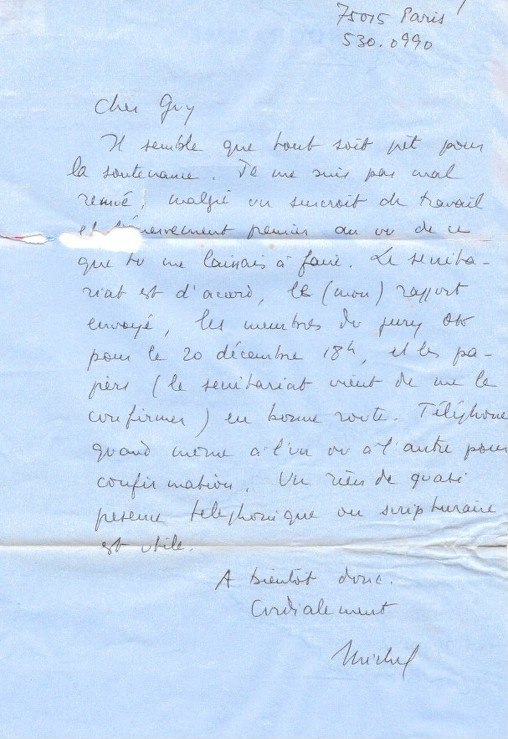 75015 Paris
530.0990
Cher Guy
Il semble que tout soit prêt pour
la soutenance. Je me suis pas mal
remué, malgré un surcroît de travail
et l'énervement premier au vu de ce
que tu me laissais à faire. Le secréta-
riat est d'acord, le (mon) rapport
envoyé, les membres du jury ok
pour le 20 décembre 18h, et les pa-
piers (le secrétariat vient de me le
confirmer) en bonne route. Téléphone
quand même à l'un ou à l'autre pour
confirmation. Un rien de quasi
présence téléphonique ou scripturaire
est utile.
A bientôt donc.
Cordialement
Michel